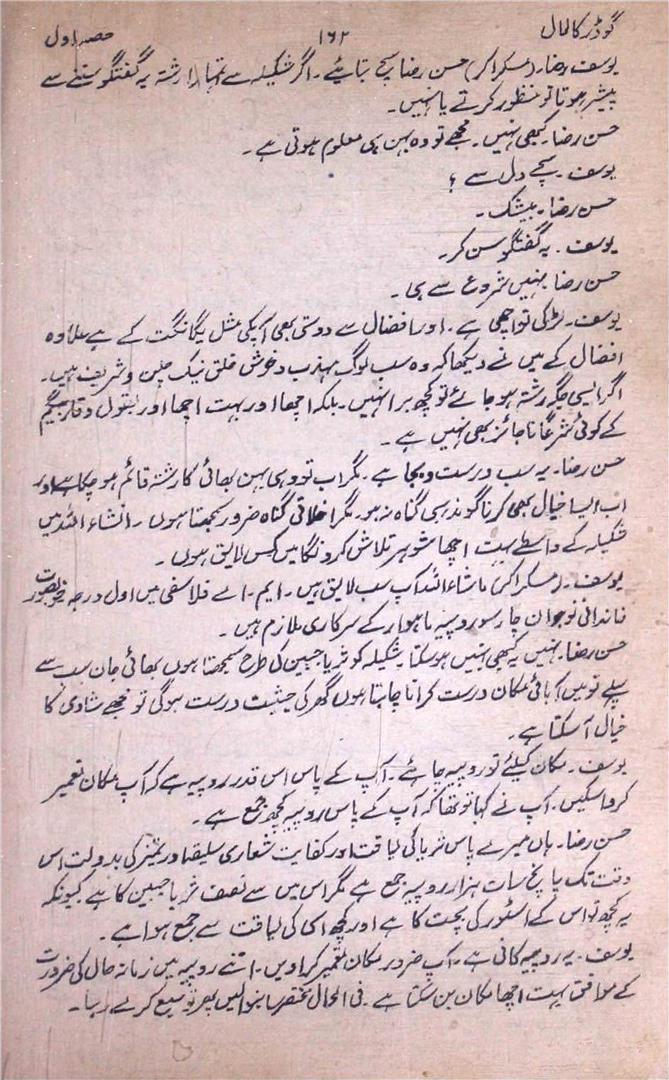 گودڑ کا لال ۱۶۲ حصہ اول
یوسف رضا۔ (مسکرا کر) حسن رضا سچ بتایئے۔ اگر شکیلہ سے تمہارا رشتہ یہ گفتگو سننے سے
پیشتر ہوتا تو منظور کرتے یا نہیں۔
حسن رضا۔ کبھی نہیں۔ مجھے تو وہ بہن ہی معلوم ہوتی ہے۔
یوسف۔ سچے دل سے ؟
حسن رضا۔ بیشک۔
یوسف۔ یہ گفتگو سن کر۔
حسن رضا۔ نہیں شروع سے ہی۔
یوسف۔ لڑکی تو اچھی ہے۔ اور افضال سے دوستی بھی آپکی مثل یگانگت کے ہے علاوہ
افضال کے میں نے دیکھا کہ وہ سب لوگ مہذب و خوش خلق نیک چلن و شریف ہیں۔
اگر ایسی جگہ رشتہ ہو جائے تو کچھ برا نہیں۔ بلکہ اچھا اور بہت اچھا اور بقول وقار بیگم
کے کوئی شرعًا ناجائز بھی نہیں ہے۔
حسن رضا۔ یہ سب درست و بجا ہے۔ مگر اب تو وہی بہن بھائی کا رشتہ قائم ہو چکا ہے اور
اب ایسا خیال بھی کرنا گو مذہبی گناہ نہ ہو۔ مگر اخلاقی گناہ ضرور سمجھتا ہوں۔ انشاء اللہ میں
شکیلہ کے واسطے بہت اچھا شوہر تلاش کرونگا میں کس لایق ہوں۔
یوسف۔ (مسکرا کر) ماشاء اللہ آپ سب لایق ہیں۔ ایم۔اے فلاسفی میں اول درجہ خوبصورت
خاندانی نوجوان چار سو روپیہ ماہوار کے سرکاری ملازم ہیں۔
حسن رضا۔ نہیں یہ کبھی نہیں ہو سکتا۔ شکیلہ کو ثریا جبین کی طرح سمجھتا ہوں بھائی جان سب سے
پہلے تو میں آبائی مکان درست کرانا چاہتا ہوں گھر کی حیثیت درست ہوگی تو مجھے شادی کا
خیال آسکتا ہے۔
یوسف۔ مکان کیلئے تو روپیہ چاہئے۔ آپ کے پاس اس قدر روپیہ ہے کہ آپ مکان تعمیر
کروا سکیں۔ آپ نے کہا تو تھا کہ آپ کے پاس روپیہ کچھ جمع ہے۔
حسن رضا۔ ہاں میرے پاس ثریا کی لیاقت اور کفایت شعاری سلیقہ اور تمیز کی بدولت اس
وقت تک پانچ سات ہزار روپیہ جمع ہے مگر اس میں سے نصف ثریا جبین کا ہے کیونکہ
یہ کچھ تو اس کے اسٹور کی بچت کا ہے اور کچھ اسی کی لیاقت سے جمع ہوا ہے۔
یوسف۔ یہ روپیہ کافی ہے۔ آپ ضرور مکان تعمیر کرا دیں۔ اتنے روپیہ میں زمانہ حال کی ضرورت
کے موافق بہت اچھا مکان بن سکتا ہے۔ فی الحال مختصر سا بنوا لیں پھر توسیع کرتے رہنا۔